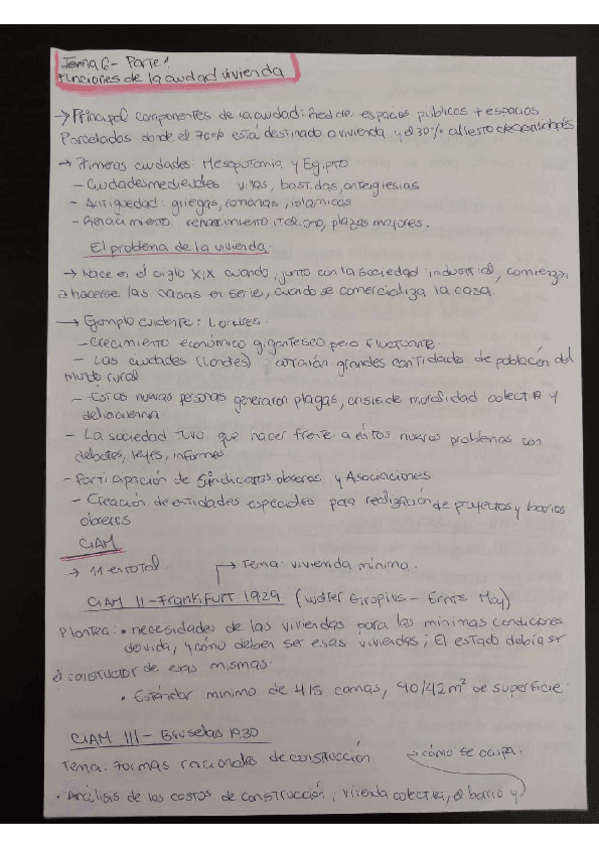 Tema 6 - Parte 1
Funciones de la ciudad vivienda
→ Principal componentes de la ciudad: Red de espacios públicos + espacios
Parcelados donde el 70% está destinado a vivienda y el 30% al resto de actividades
→ Primeras ciudades: Mesopotamia y Egipto
- Ciudades medievales: villas, bastidas, anteiglesias
- Antiguedad: griegas, romanas, islámicas
- Renacimiento: renacimiento italiano, plazas mayores.
El problema de la vivienda
→ Nace en el siglo XIX cuando, junto con la sociedad industrial, comienzan
a hacerse las casas en serie, cuando se comercializa la casa.
→ Ejemplo evidente: Londres.
- Crecimiento económico gigantesco pero fluctuante.
- Las ciudades (Londres) atraían grandes cantidades de población del
mundo rural
- Estas nuevas personas generaron plagas, crisis de moralidad colectiva y
delincuencia
- La sociedad tuvo que hacer frente a estos nuevos problemas con
debates, leyes, informes
- Participación de Sindicatos obreros y Asociaciones
- Creación de entidades especiales para realización de proyectos y barrios
obreros
CIAM
→ 11 en total
→ Tema: vivienda mínima.
CIAM II - Frankfurt 1929 (Walter Gropius - Ernts May)
Plantea: • necesidades de las viviendas para las mínimas condiciones
de vida, y cómo deben ser esas viviendas; El estado debía ser
el constructor de esas mismas.
• Estándar mínimo de 4/5 camas, 40/42 m² de superficie.
CIAM III - Bruselas 1930
Tema: Formas racionales de construcción
→ cómo se ocupa.
• Análisis de los costos de construcción, vivienda colectiva, el barrio y